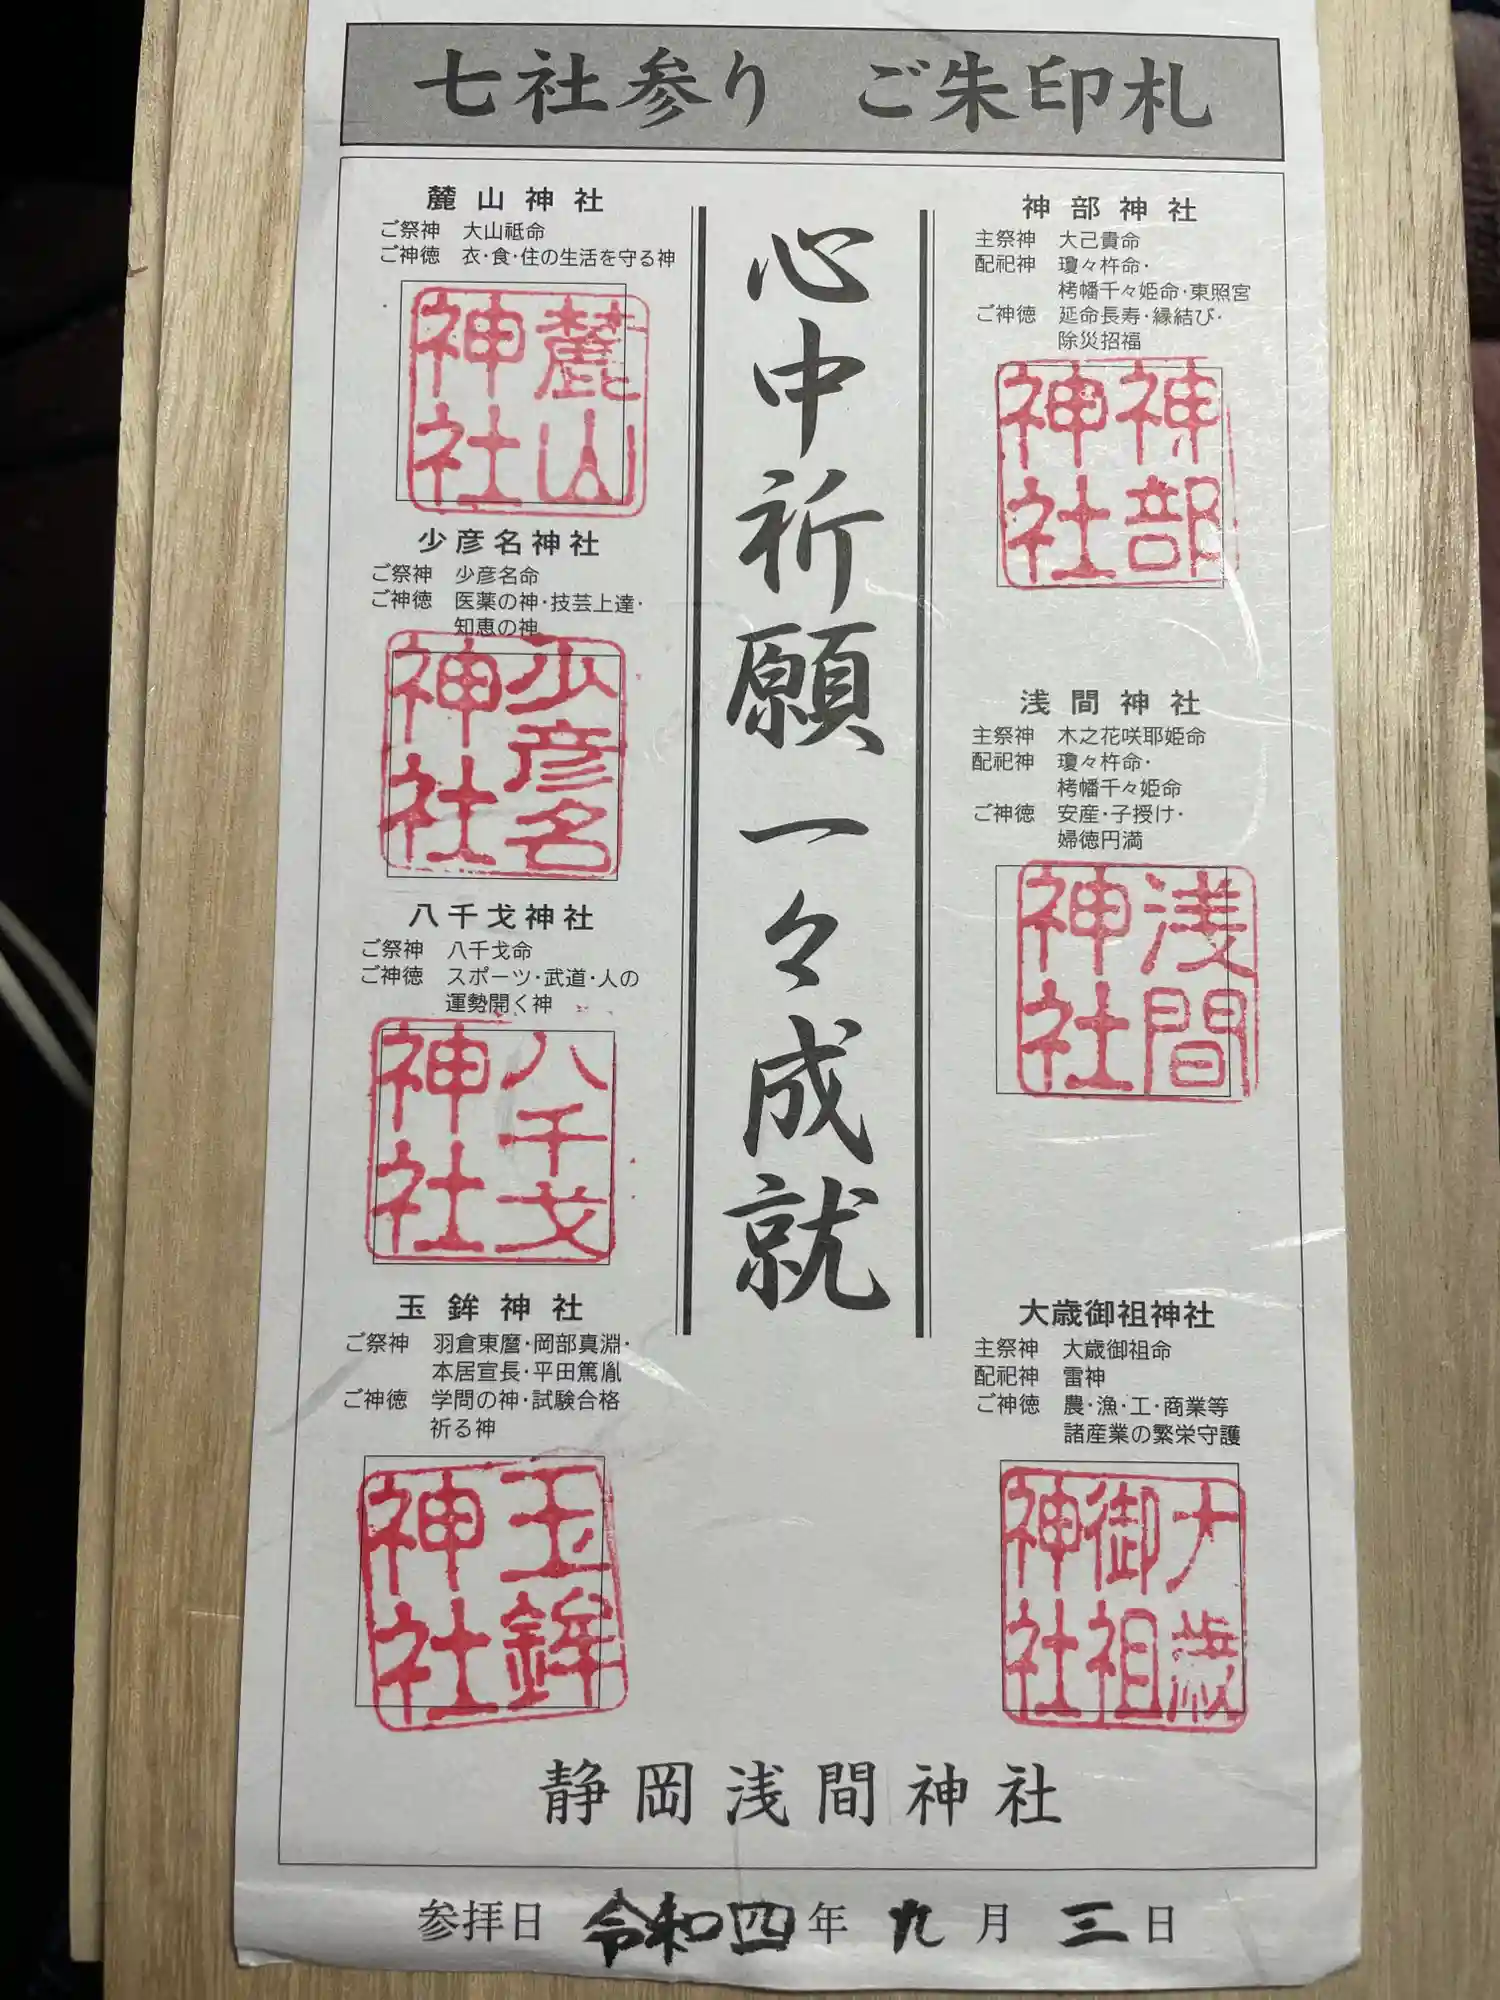 七社参り ご朱印札
神部神社
主祭神 大己貴命
配祀神 瓊々杵命・
栲幡千々姫命・東照宮
ご神徳 延命長寿・縁結び・
除災招福
神部
神社
浅間神社
主祭神 木之花咲耶姫命
配祀神 瓊々杵命・
栲幡千々姫命
ご神徳 安産・子授け・
婦徳円満
浅間
神社
大歳御祖神社
主祭神 大歳御祖命
配祀神 雷神
ご神徳 農・漁・工・商業等
諸産業の繁栄守護
大歳
御祖
神社
心中祈願一々成就
麓山神社
ご祭神 大山祗命
ご神徳 衣・食・住の生活を守る神
麓山
神社
少彦名神社
ご祭神 少彦名命
ご神徳 医薬の神・技芸上達・
知恵の神
少彦名
神社
八千戈神社
ご祭神 八千戈命
ご神徳 スポーツ・武道・人の
運勢開く神
八千戈
神社
玉鉾神社
ご祭神 羽倉東麿・岡部真淵・
本居宣長・平田篤胤
ご神徳 学問の神・試験合格
祈る神
玉鉾
神社
静岡浅間神社
参拝日 令和四年 九月 三日